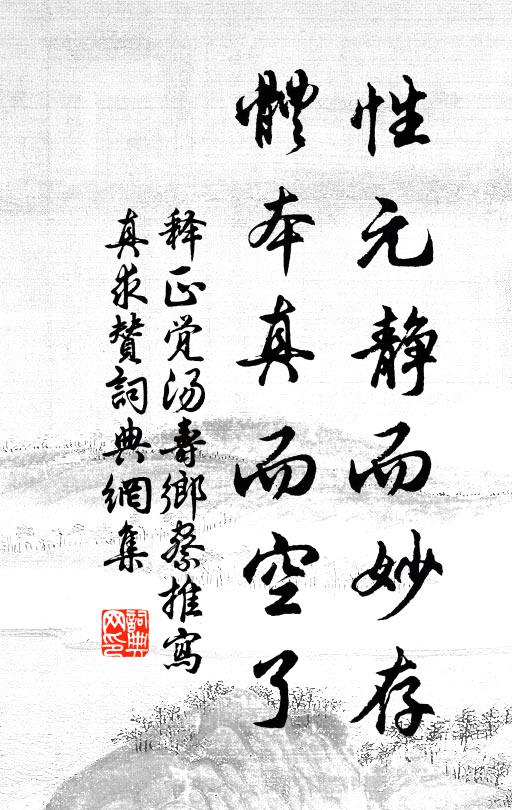 性元静而妙存
體本真而空了
释正觉汤壽鄉察推寫
真求賛詞典網集
詞典网印